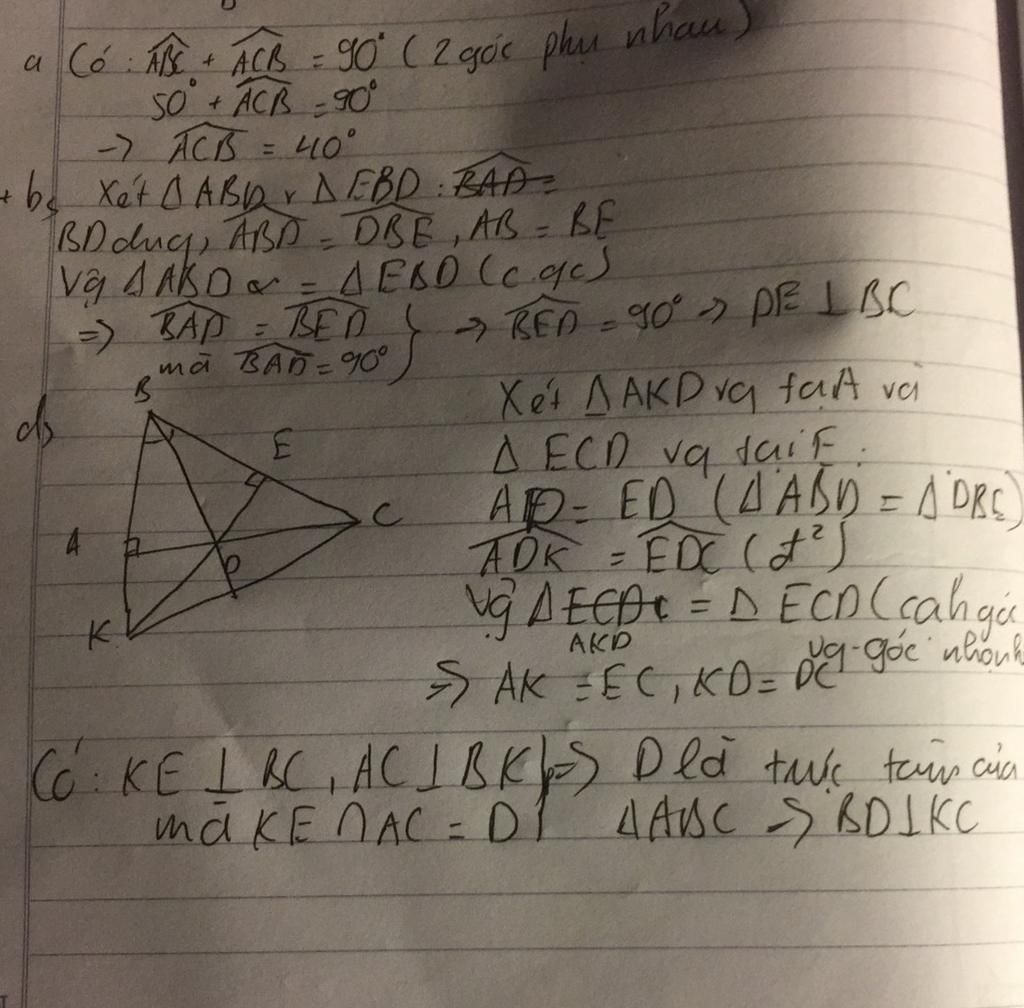 a Có: ABC + ACB = 90° (2 góc phụ nhau)
50° + ACB = 90°
-> ACB = 40°
+ b, Xét Δ ABD v Δ EBD: BAD =
BD , ABD = DBE, AB = BE
Vậ Δ ABD = Δ EBD (c gc)
=> BAD = BED } -> BED = 90° -> DE ⊥ BC
mà BAD = 90°
d,
B
E
C
A
D
K
Xét Δ AKD vg tại A và
Δ ECD vg tại E:
AD = ED (Δ ABD = Δ DBE)
ADK = EDC (đ²)
Vậ Δ ECD = Δ ECD (cạnh gó
AKD
vg-góc nhọnh
=> AK = EC, KD = DC
Có: KE ⊥ BC, AC ⊥ BK } => D là trực tâm của
mà KE ∩ AC = D Δ ABC -> BD ⊥ KC